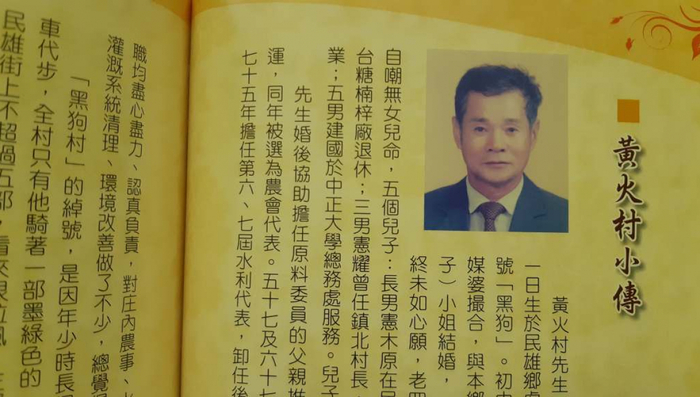 黃火村小傳
黃火村先生
一日生於民雄鄉
號「黑狗」。初中
媒婆撮合，與本鄉
子）小姐結婚，
終未如心願，老四
自嘲無女兒命，五個兒子：長男憲木原在民
台糖楠梓廠退休；三男憲耀曾任鎮北村長，
業；五男建國於中正大學總務處服務。兒子
先生婚後協助擔任原料委員的父親推
運，同年被選為農會代表。五十七及六十七
七十五年擔任第六、七屆水利代表，卸任後
職均盡心盡力、認真負責，對庄內農事、
灌溉系統清理、環境改善做了不少，總覺得
「黑狗村」的綽號，是因年少時長
車代步，全村只有他騎著一部墨綠色的
民雄街上不超過五部，看來很拉風